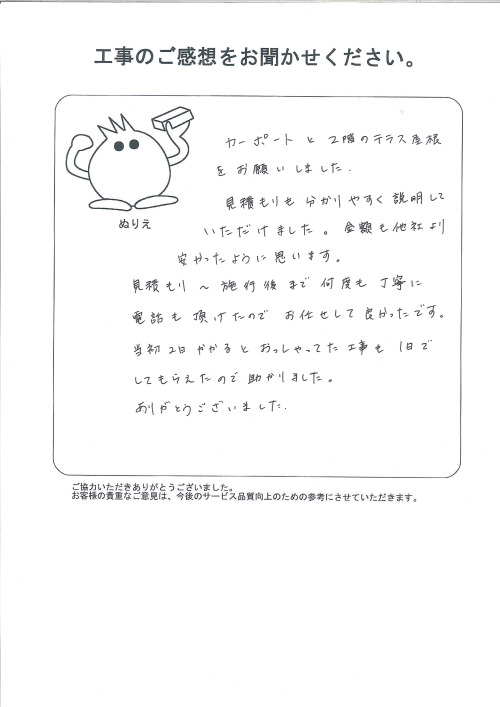 工事のご感想をお聞かせください。
カーポートと2階のテラス屋根
をお願いしました.
見積もりも分かりやすく説明して
いただけました。金額も他社より
安かったように思います。
ぬりえ
見積もり～施行後まで何度も丁寧に
電話も頂けたのでお任せして良かったです。
当初2日かかるとおっしゃってた工事も1日で
してもらえたので助かりました。
ありがとうございました.
ご協力いただきありがとうございました。
お客様の貴重なご意見は、今後のサービス品質向上のための参考にさせていただきます。